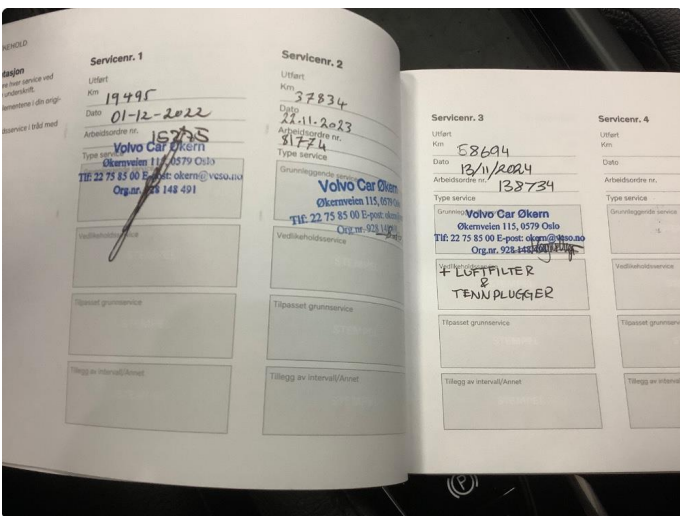 NEHOLD
tasjon
re hver service ved
underskrift.
lementene i din origi-
dsservice i tråd med
Servicenr. 1
Utført
Km 19495
Dato 01-12-2022
Arbeidsordre nr. 15275
Type service
Volvo Car Økern
Økernveien 115, 0579 Oslo
Tlf: 22 75 85 00 E-post: okern@vcso.no
Org.nr. 928 148 491
Vedlikeholdsservice
Tilpasset grunnservice
Tillegg av intervall/Annet
Servicenr. 2
Utført
Km 37834
Dato 22.11.2023
Arbeidsordre nr. 81774
Type service
Grunnleggende service
Volvo Car Økern
Økernveien 115, 0579
Tlf: 22 75 85 00 E-post: okern
Org.nr. 928 148
Vedlikeholdsservice
Tilpasset grunnservice
Tillegg av intervall/Annet
Servicenr. 3
Utført
Km 58694
Dato 13/11/2024
Arbeidsordre nr. 138734
Type service
Volvo Car Økern
Økernveien 115, 0579 Oslo
Tlf: 22 75 85 00 E-post: okern@vcso.no
Org.nr. 928 148 491
Vedlikeholdsservice
+ LUFTFILTER
&
TENNPLUGGER
Tilpasset grunnservice
Tillegg av intervall/Annet
Servicenr. 4
Utført
Km
Dato
Arbeidsordre nr.
Type service
Grunnleggende service
Vedlikeholdsservice
Tilpasset grunnserv
Tillegg av intervall/Ann